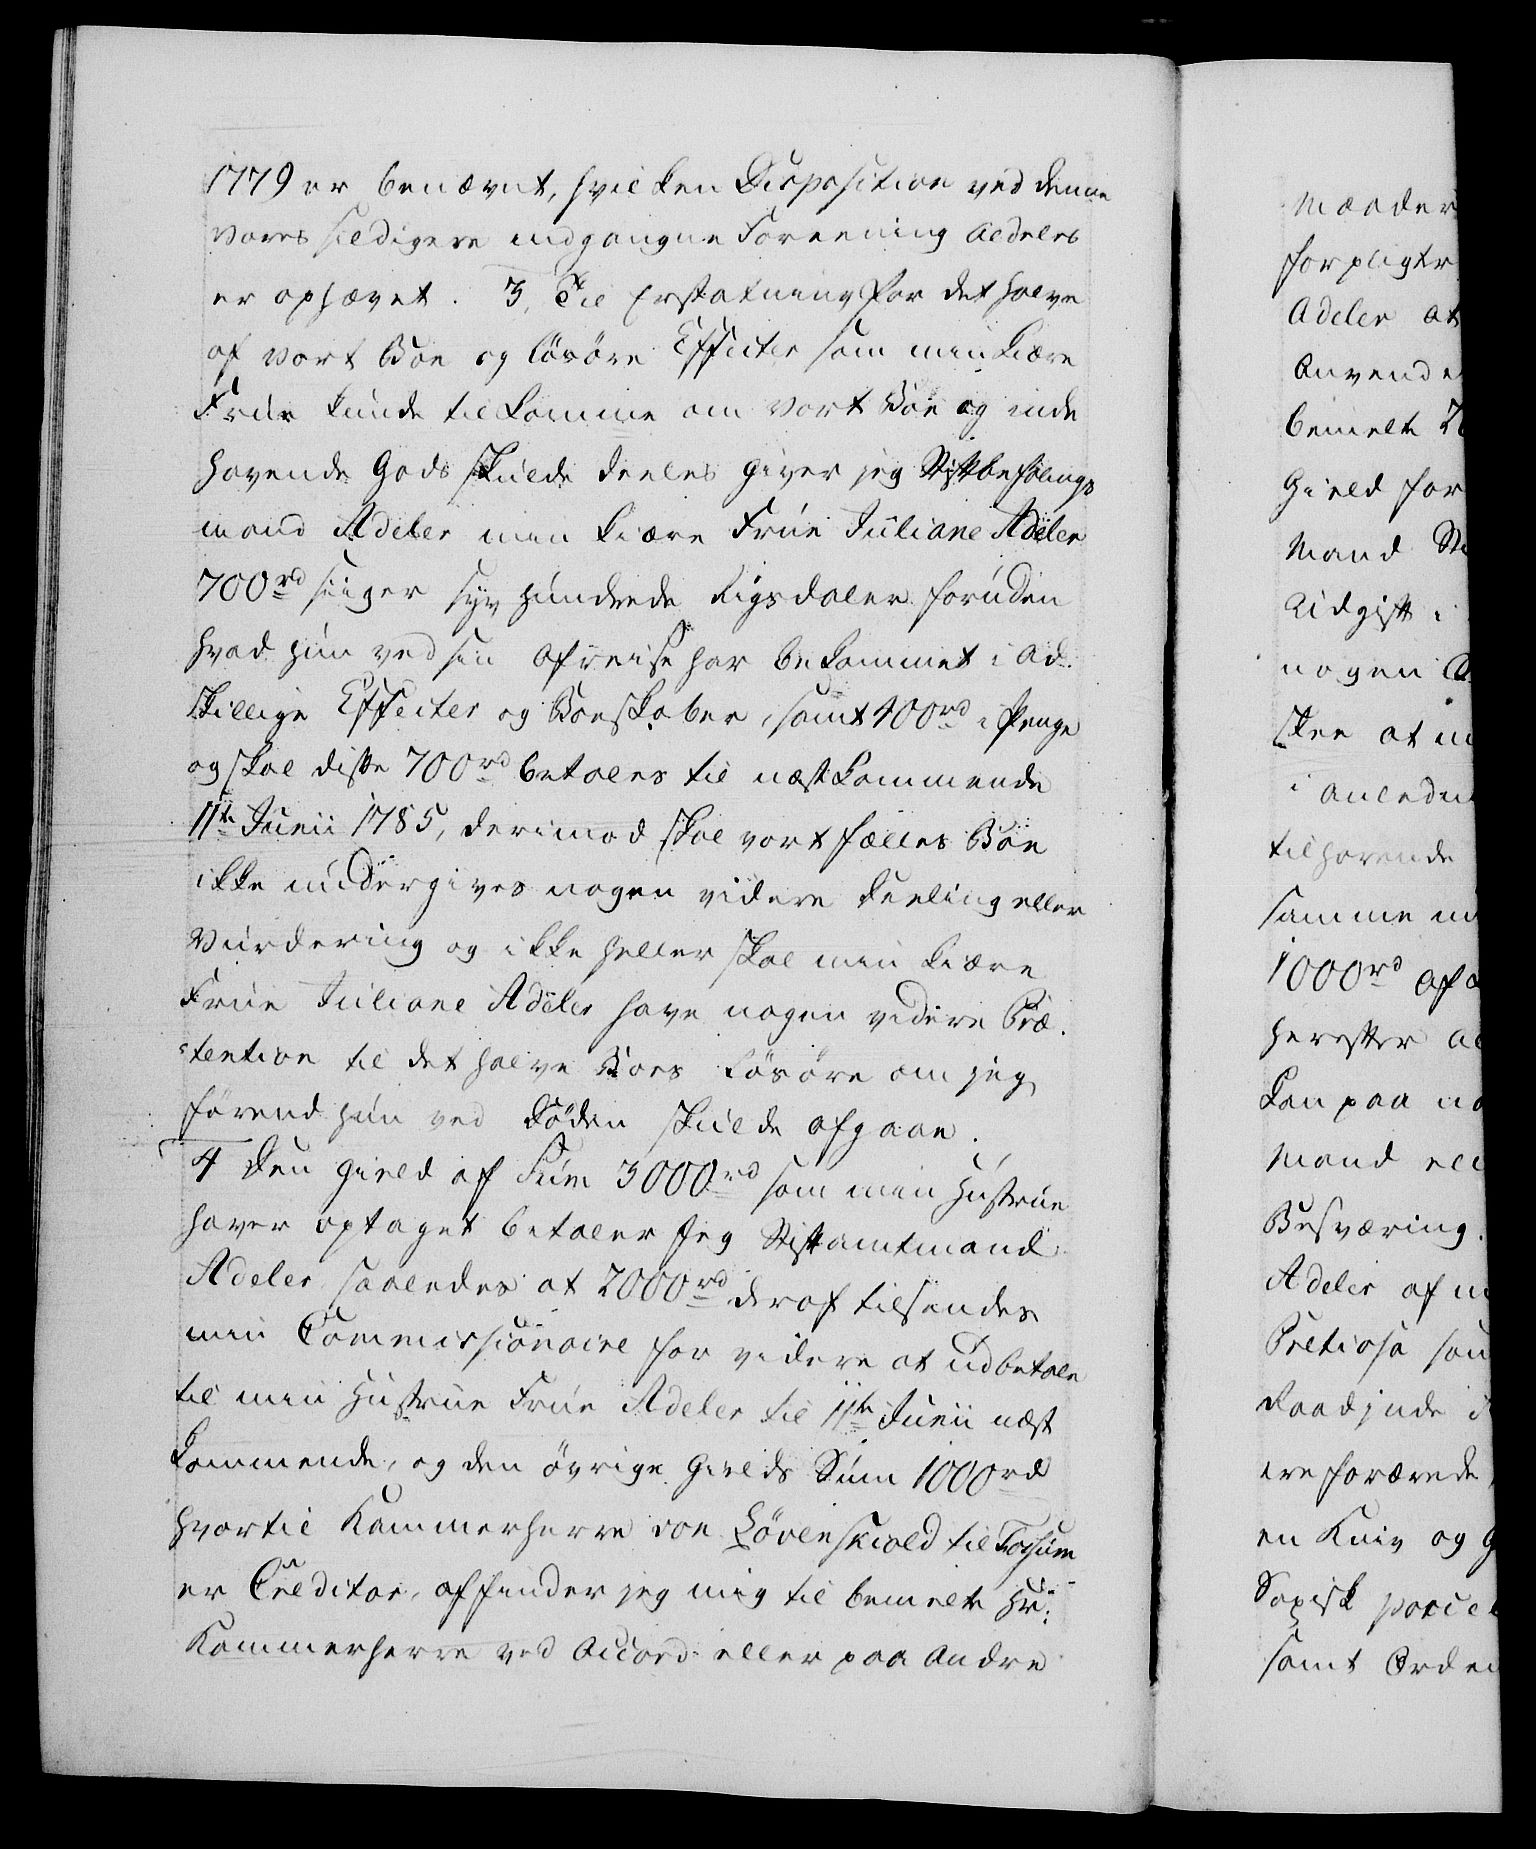 1779 er benævnt, hvilken Disposition ved denne
vores sildigere indgangne Foreening aldeles
er ophævet. 3, Til Erstatning for det halve
af vort Boe og Løsøre Effecter som min kiære
Frue kunde tilkomme om vort Boe og inde
havende Gods skulde deeles giver jeg Stiftbefalings
mand Adeler min kiære Frue Juliane Adeler
700rd siiger syv hundrede Rigsdaler foruden
hvad hun ved sin afreise har bekommet i ad.
skillige Effecter og Boeskaber, samt 400rd i Penge
og skal disse 700rd betales til næstkommende
11te Junii 1785, derimod skal vort fælles Boe
ikke undergives nogen videre Deeling eller
Vurdering og ikke heller skal min kiære
Frue Juliane Adeler have nogen videre Præ.
tention til det halve Boes Løsøre om jeg
førend hun ved Døden skulde afgaae.
4 Den Gield af Sum 3000rd som min Hustrue
haver optaget betaler Jeg Stiftamtmand
Adeler saaledes at 2000rd deraf tilsendes
min Commissionaire for videre at udbetale
til min Hustrue Frue Adeler til 11te Junii næst
kommende, og den øvrige Gields Sum 1000rd
hvortil Kammerherre von Løvenskiold til Fossum
er Creditor, affinder jeg mig til bemelte Hr:
Kammerherre ved Accord eller paa Andre
Maader
forpligter
Adeler at
Anvende
bemelte
Gield for
Mand
Udgift i
nogen
skee at
i anledn
tilhørende
samme
1000rd af
herefter
kan paa
Mand
Besværing.
Adeler af
Pretiosa
Raad
ere forærede
en Kniv og
Saxisk porcel
samt Orden